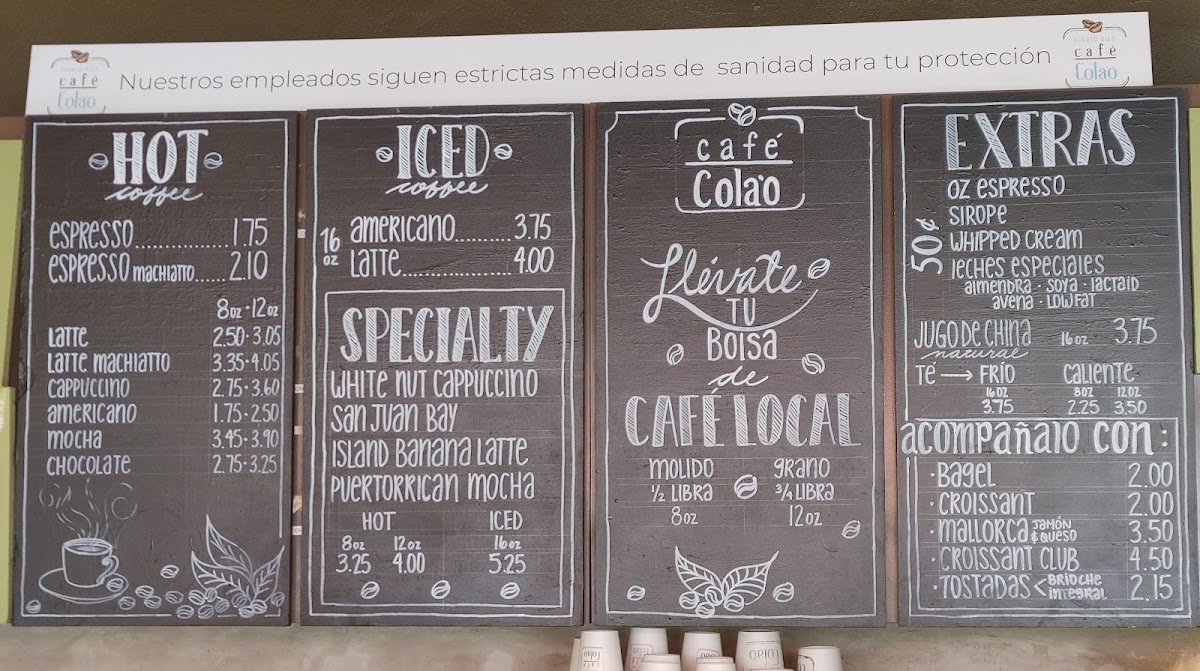 PUERTO RICO
café
Colao
Nuestros empleados siguen estrictas medidas de sanidad para tu protección
PUERTO RICO
café
Colao
HOT
coffee
ESPRESSO..............1.75
ESPRESSO MACHIATTO.....2.10
8oz · 12oz
LATTE 2.50 · 3.05
LATTE MACHIATTO 3.35 · 4.05
CAPPUCCINO 2.75 · 3.60
AMERICANO 1.75 · 2.50
MOCHA 3.45 · 3.90
CHOCOLATE 2.75 · 3.25
ICED
coffee
16 oz
AMERICANO.......... 3.75
LATTE.................... 4.00
SPECIALTY
WHITE NUT CAPPUCCINO
SAN JUAN BAY
ISLAND BANANA LATTE
PUERTORRICAN MOCHA
HOT ICED
8oz 12oz 16oz
3.25 4.00 5.25
café
Colao
Llévate
TU
BOLSA
de
CAFÉ LOCAL
MOLIDO GRANO
1/2 LIBRA 3/4 LIBRA
8oz 12oz
EXTRAS
50¢
OZ ESPRESSO
SIROPE
WHIPPED CREAM
LECHES ESPECIALES
ALMENDRA · SOYA · LACTAID
AVENA · LOWFAT
JUGO DE CHINA 16oz 3.75
natural
TÉ → FRÍO CALIENTE
16oz 8oz 12oz
3.75 2.25 3.50
ACOMPAÑALO CON:
· BAGEL 2.00
· CROISSANT 2.00
· MALLORCA JAMÓN & QUESO 3.50
· CROISSANT CLUB 4.50
· TOSTADAS < BRIOCHE INTEGRAL 2.15
café
Colao